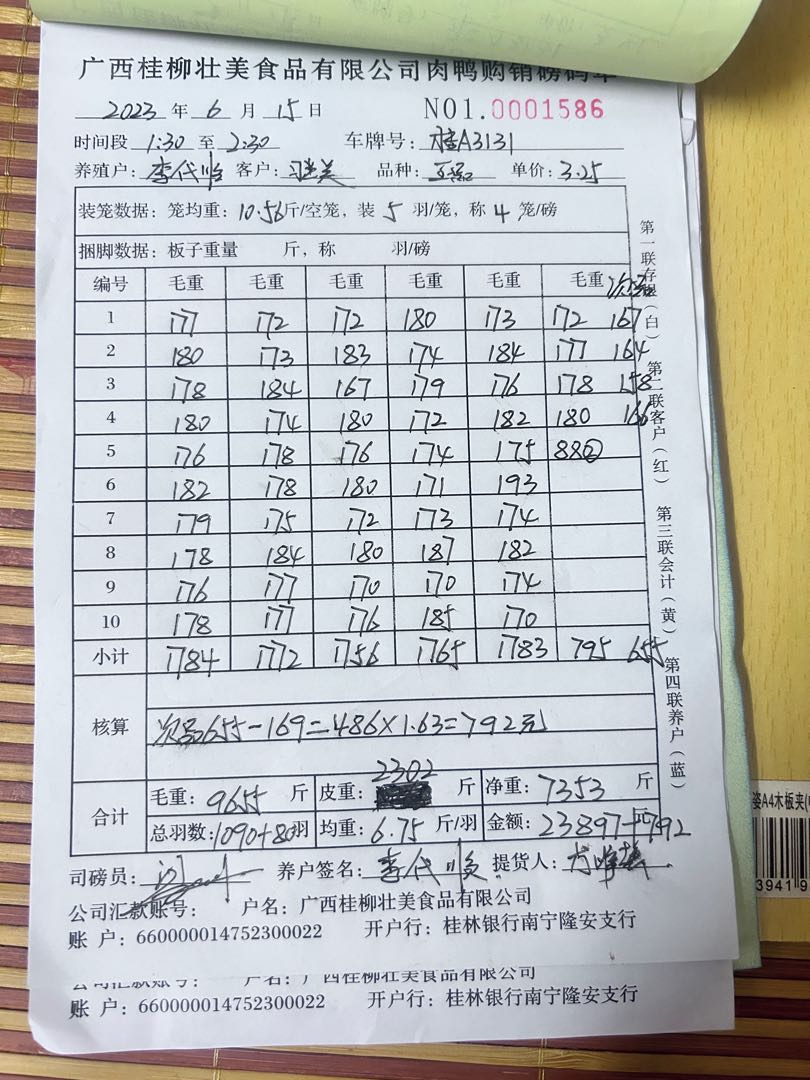 广西桂柳壮美食品有限公司肉鸭购销磅码单
2023 年 6 月 15 日 NO1.0001586
时间段 1:30 至 2:30 车牌号: 桂A3131
养殖户: 李代 客户: 美 品种: 单价: 3.25
装笼数据: 笼均重: 10.56 斤/空笼, 装 5 羽/笼, 称 4 笼/磅
捆脚数据: 板子重量 斤, 称 羽/磅
编号 毛重 毛重 毛重 毛重 毛重 毛重 次品
1 177 172 172 180 173 172 167
2 180 173 183 174 184 177 164
3 178 184 167 179 176 178 158
4 180 174 180 172 182 180 166
5 176 178 176 174 175 88②
6 182 178 180 171 193
7 179 175 172 173 174
8 178 184 180 187 182
9 176 177 170 170 174
10 178 177 176 185 170
小计 1784 1772 1756 1765 1783 795 655
核算 次品655-169=486×1.63=792元
合计 毛重: 9655 斤 皮重: 2302 斤 净重: 7353 斤
总羽数: 1090+80羽 均重: 6.75 斤/羽 金额: 23897+792
司磅员: 养户签名: 李代 提货人:
公司汇款账号: 户名: 广西桂柳壮美食品有限公司
账 户: 660000014752300022 开户行: 桂林银行南宁隆安支行
第一联存根(白) 第二联客户(红) 第三联会计(黄) 第四联养户(蓝)
公司汇款账号: 户名: 广西桂柳壮美食品有限公司
账 户: 660000014752300022 开户行: 桂林银行南宁隆安支行
姿A4木板夹(
39419